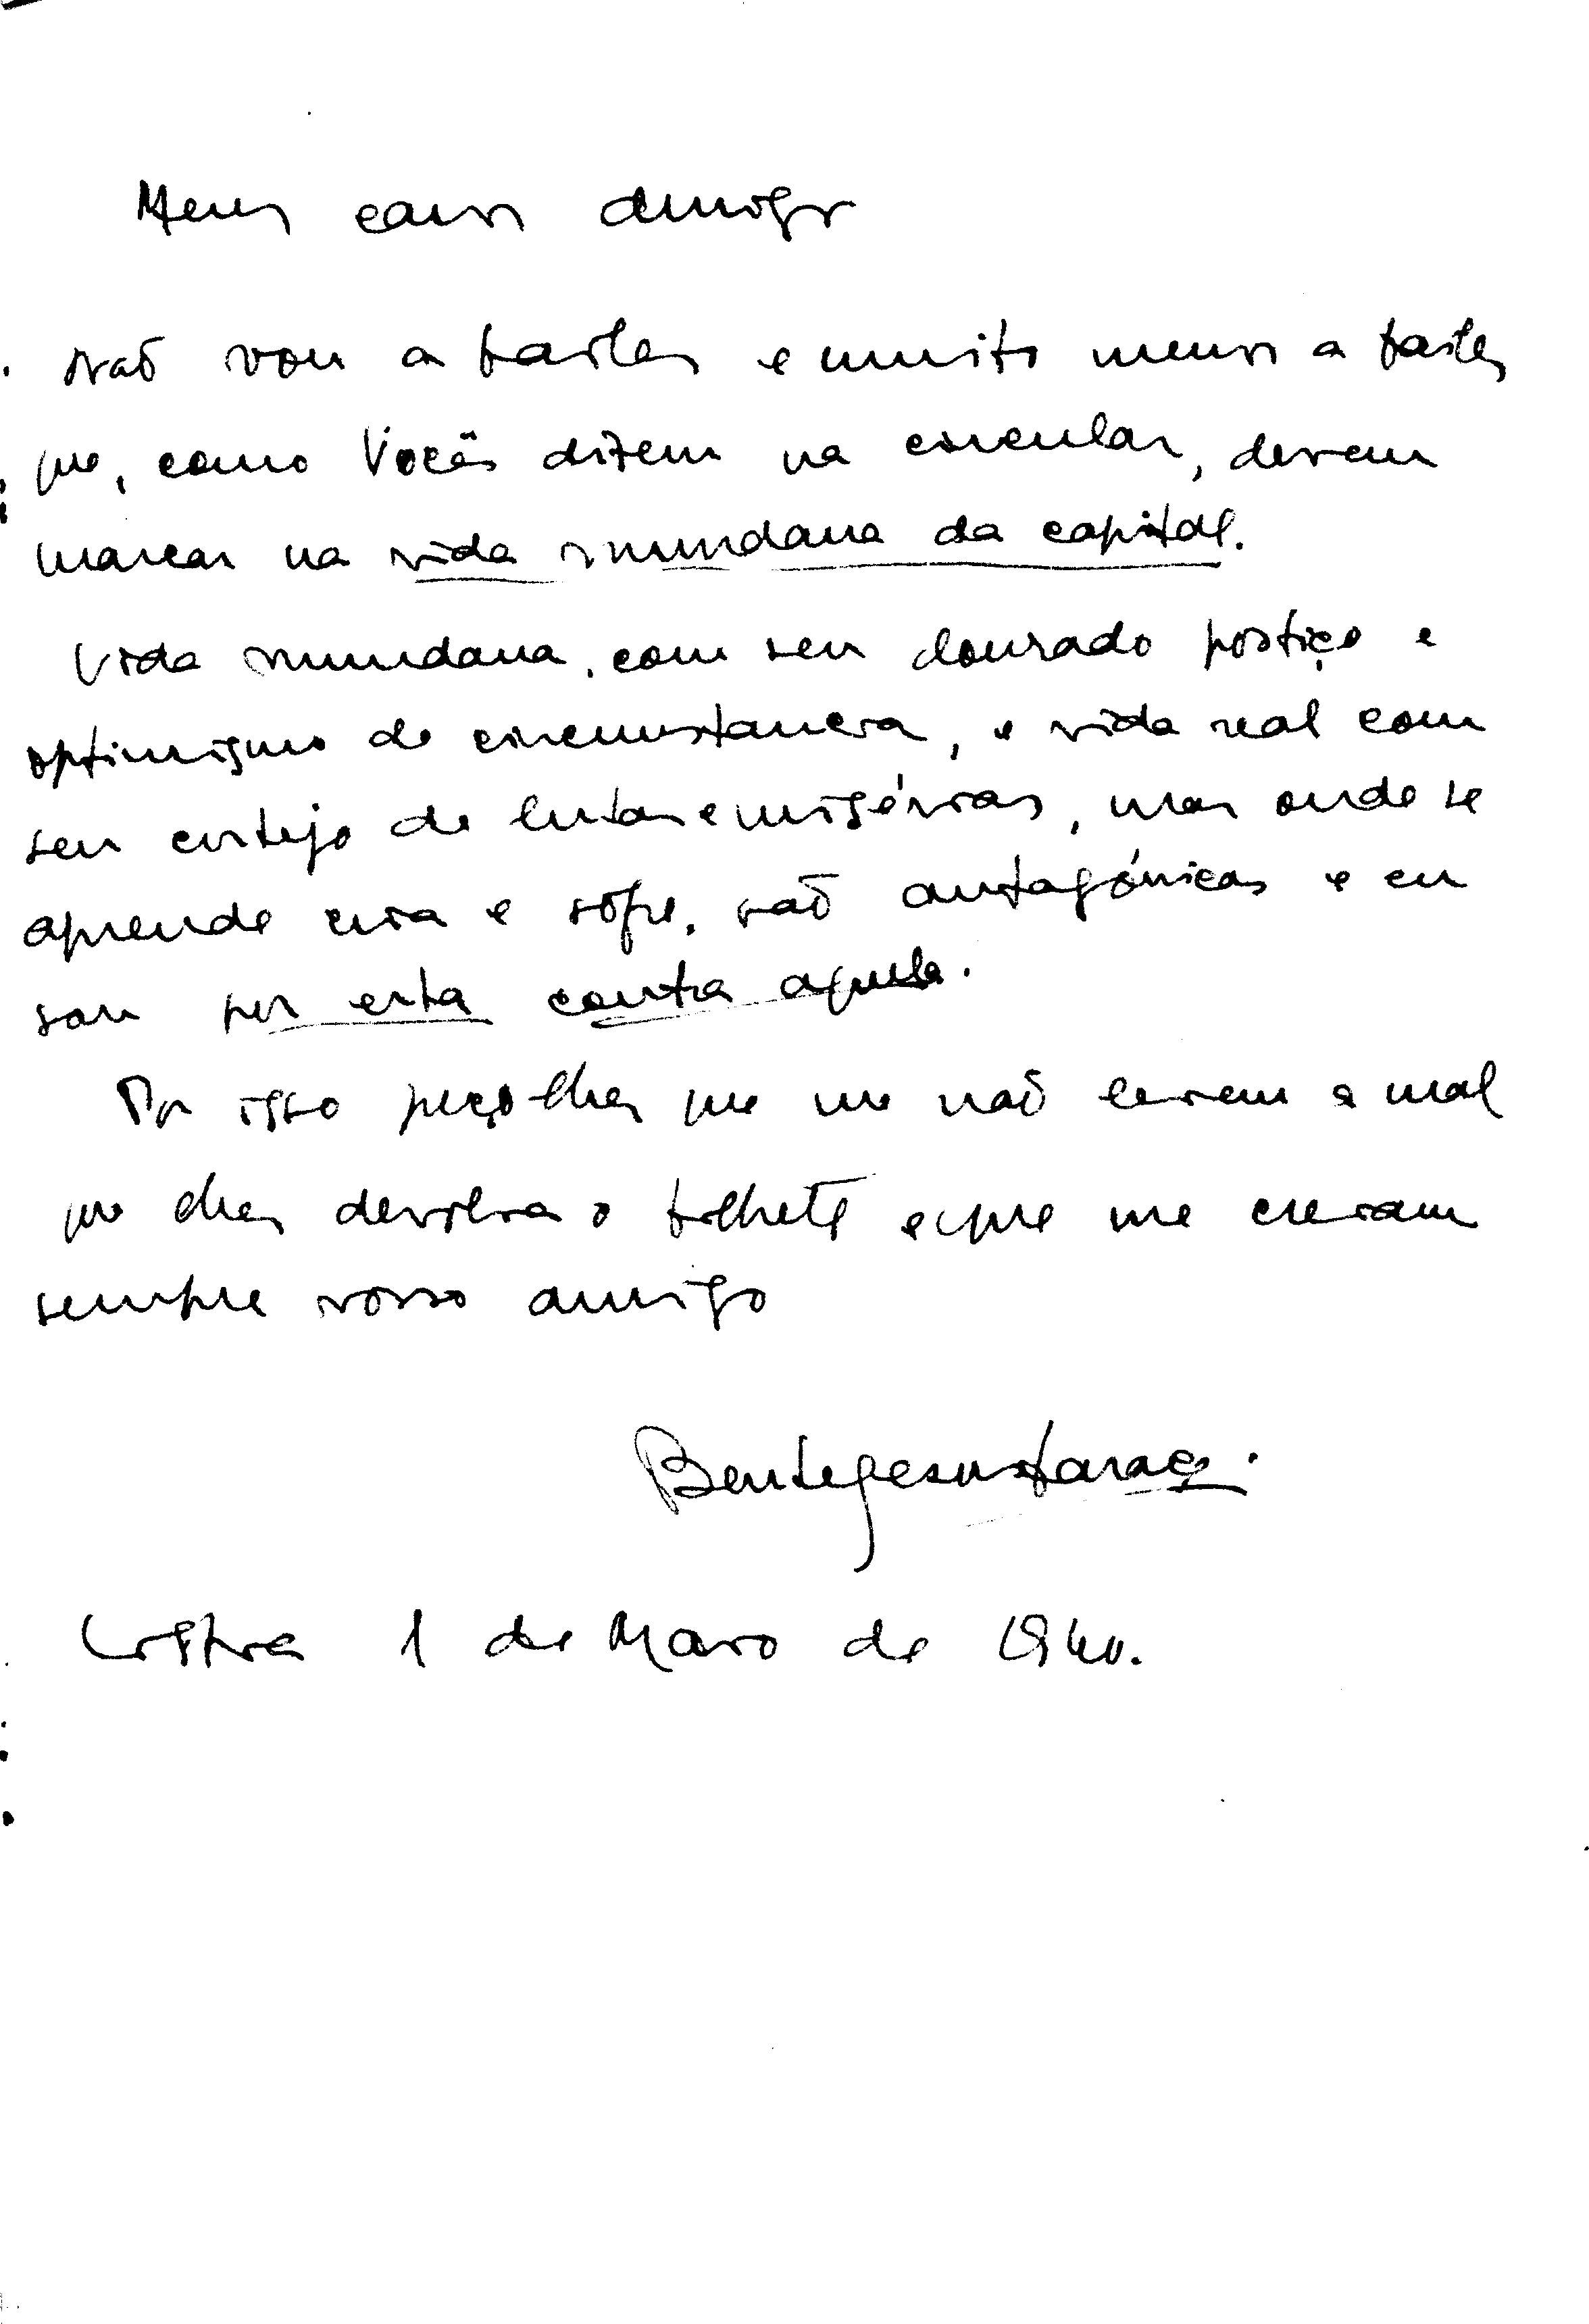 Meus caros amigos
Não vou a bailes e muito menos a bailes
que, como Vocês dizem na circular, devem
marcar na vida mundana da capital.
Vida mundana, com seu dourado postiço e
optimismo de circumstancia, e vida real com
seu cortejo de lutas e misérias, mas onde se
aprende cria e sofre, são antagónicas e eu
sou por esta contra aquela.
Por isso peço-lhes que me não levem a mal
que lhes devolva o bilhete e que me creiam
sempre vosso amigo
Bento Jesus Caraça.
Lisboa 1 de Março de 1940.